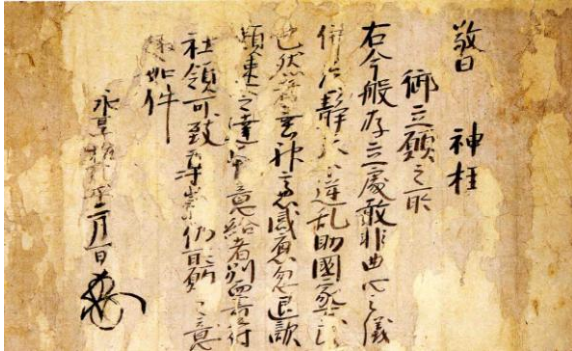 敬白 神柱
御立願之所
右今般存立處敢非曲心之儀
併為静天下逆乱助國家
也然者垂神意感應忽退敵
速達本意給者別而寄付
社領可致尊崇仍願之意
趣如件
永享 二月日